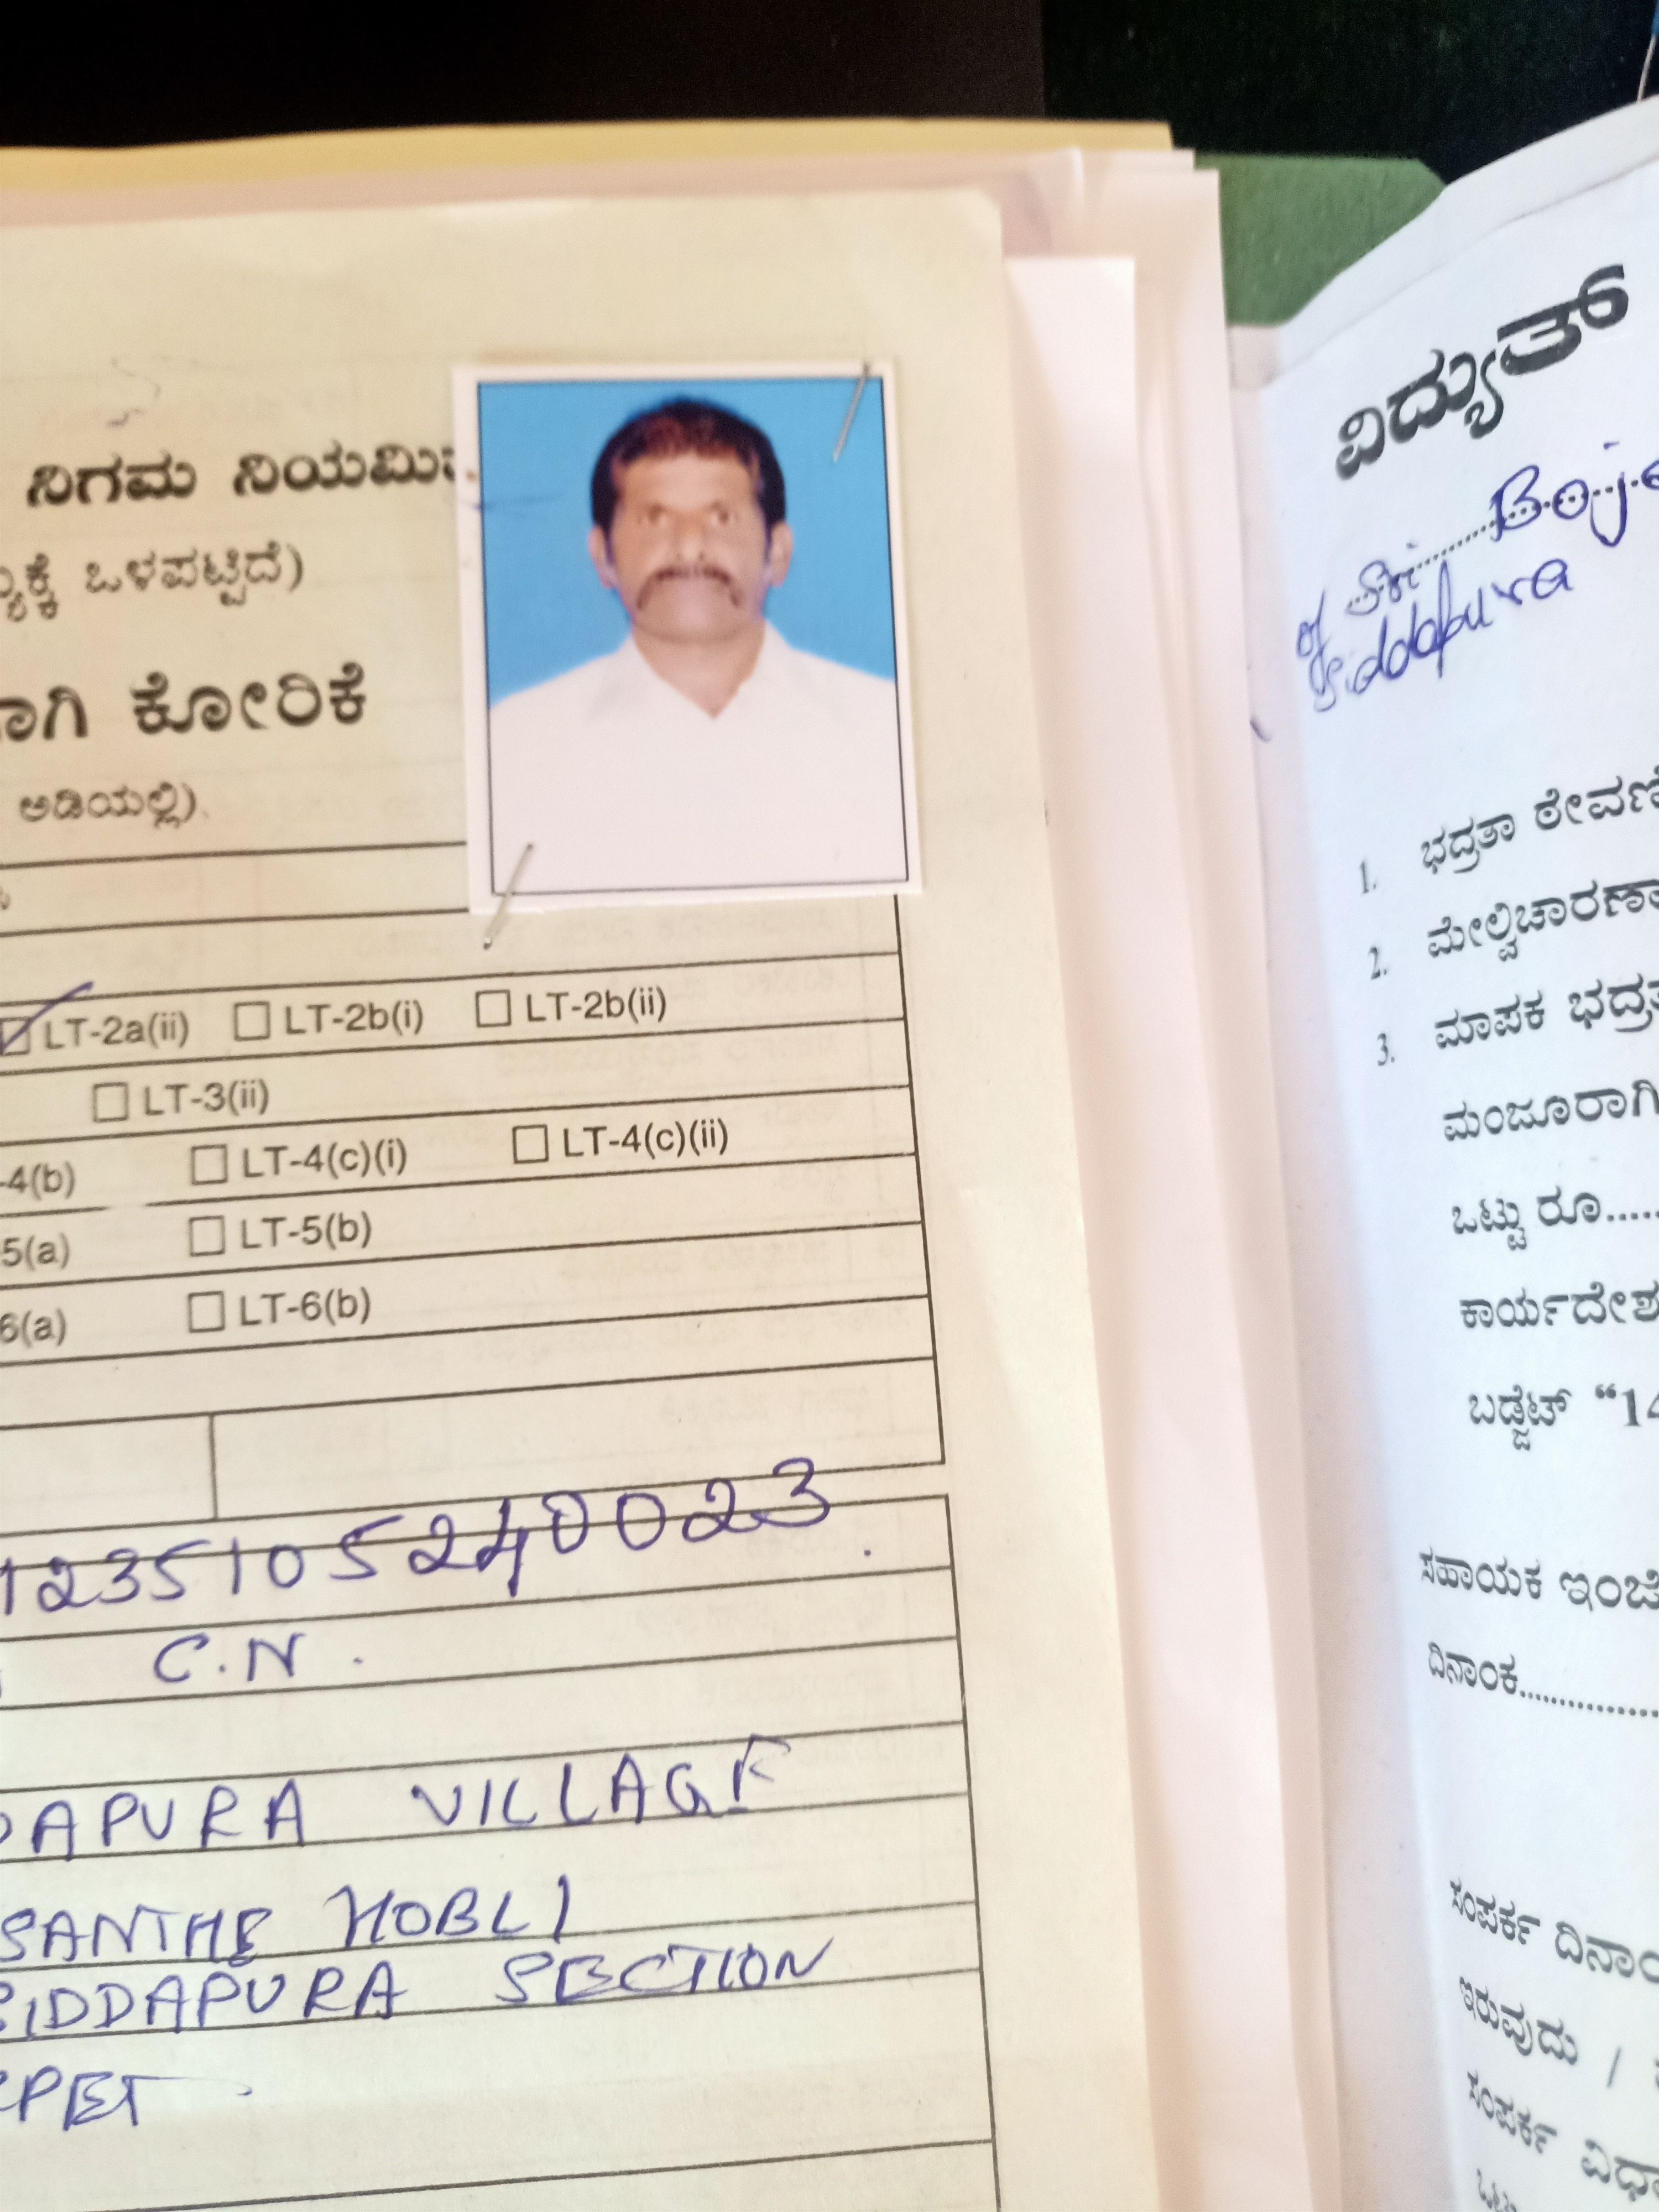 ನಿಗಮ ನಿಯಮಿ
ಒಳಪಟ್ಟಿದೆ)
ಕೋರಿಕೆ
ಅಡಿಯಲ್ಲಿ).
LT-2a(ii) LT-2b(i) LT-2b(ii)
LT-3(ii)
-4(b) LT-4(c)(i) LT-4(c)(ii)
5(a) LT-5(b)
6(a) LT-6(b)
1235105240023
C.N.
DAPURA VILLAGE
SANTHE HOBLI
SIDDAPURA SECTION
PET
ವಿದ್ಯುತ್
of Sri Boj
Siddapura
1. ಭದ್ರತಾ ಠೇವಣಿ
2. ಮೇಲ್ವಿಚಾರಣಾ
3. ಮಾಪಕ ಭದ್ರತ
ಮಂಜೂರಾಗಿ
ಒಟ್ಟು ರೂ.....
ಕಾರ್ಯದೇಶ
ಬಡ್ಜೆಟ್ "14
ಸಹಾಯಕ ಇಂಜಿ
ದಿನಾಂಕ..............
ಸಂಪರ್ಕ ದಿನಾಂ
ಇರುವುದು /
ಸಂಪರ್ಕ ವಿಧಾ